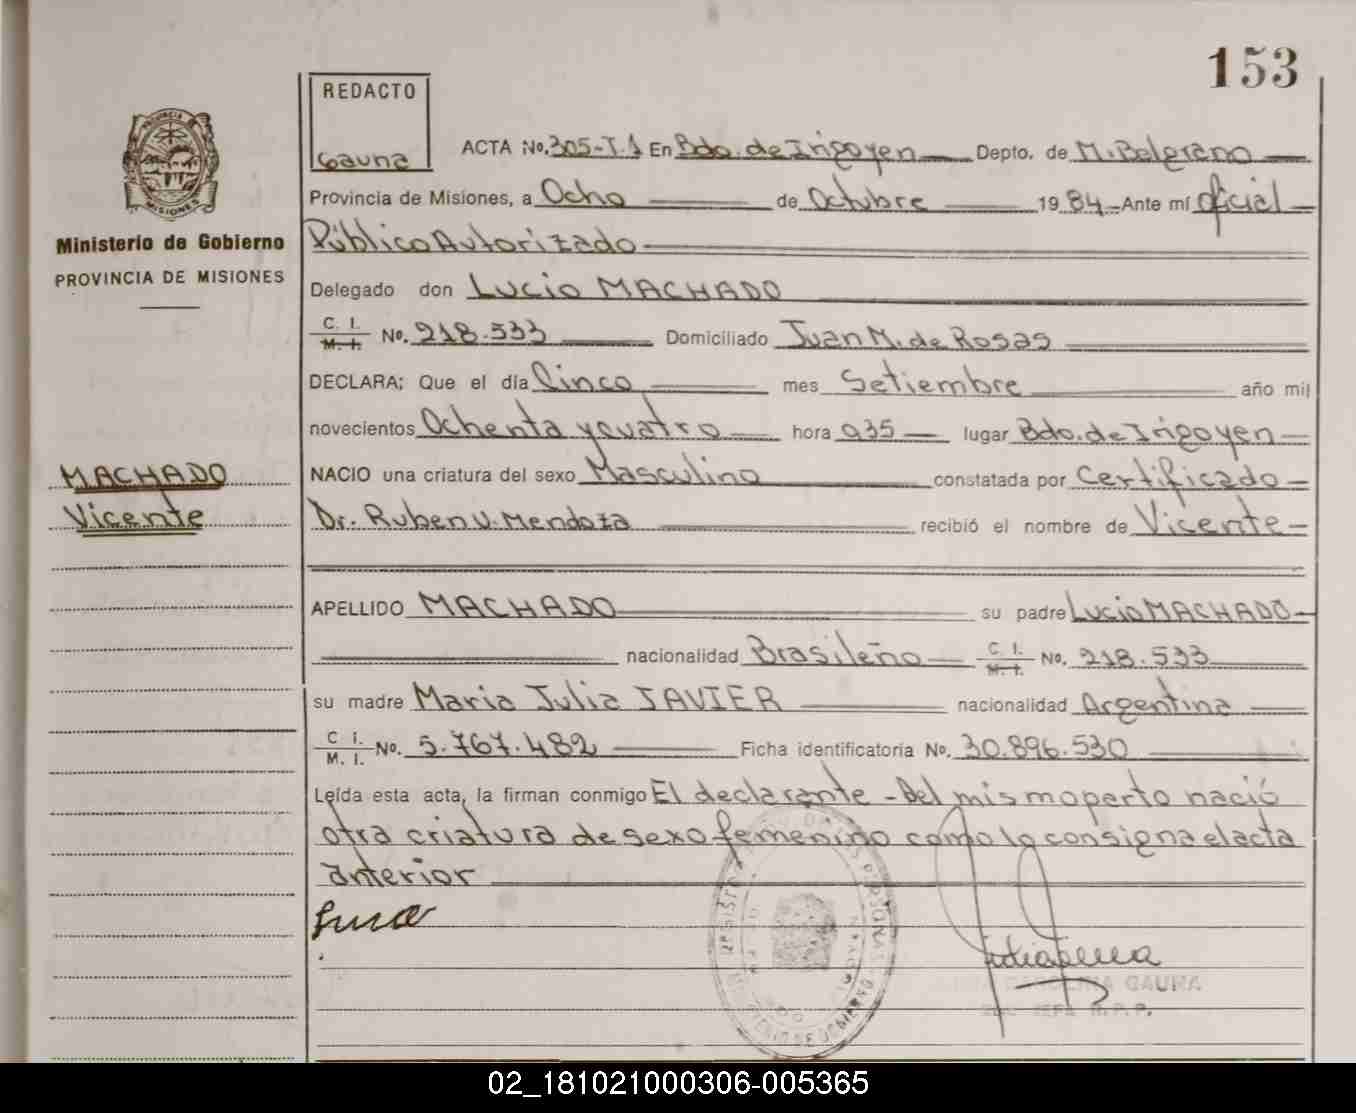 153
REDACTO
Gauna
PROVINCIA DE MISIONES
Ministerio de Gobierno
PROVINCIA DE MISIONES
ACTA No. 305-T.1 En Bdo. de Irigoyen Depto. de M. Belgrano
Provincia de Misiones, a Ocho de Octubre 1984 Ante mí Oficial
Público Autorizado
Delegado don Lucio MACHADO
C. I. M. I. No. 218.533 Domiciliado Juan M. de Rosas
DECLARA; Que el día Cinco mes Setiembre año mil
novecientos Ochenta y cuatro hora 935 lugar Bdo. de Irigoyen
MACHADO
NACIO una criatura del sexo Masculino constatada por Certificado
Vicente
Dr. Ruben V. Mendoza recibió el nombre de Vicente
APELLIDO MACHADO su padre Lucio MACHADO
nacionalidad Brasileño C. I. M. I. No. 218.533
su madre Maria Julia JAVIER nacionalidad Argentina
C I. M. I. No. 5.767.482 Ficha identificatoria No. 30.896.530
Leída esta acta, la firman conmigo El declarante - Del mismo parto nació
otra criatura de sexo femenino como lo consigna el acta
anterior
GAUNA
02_181021000306-005365